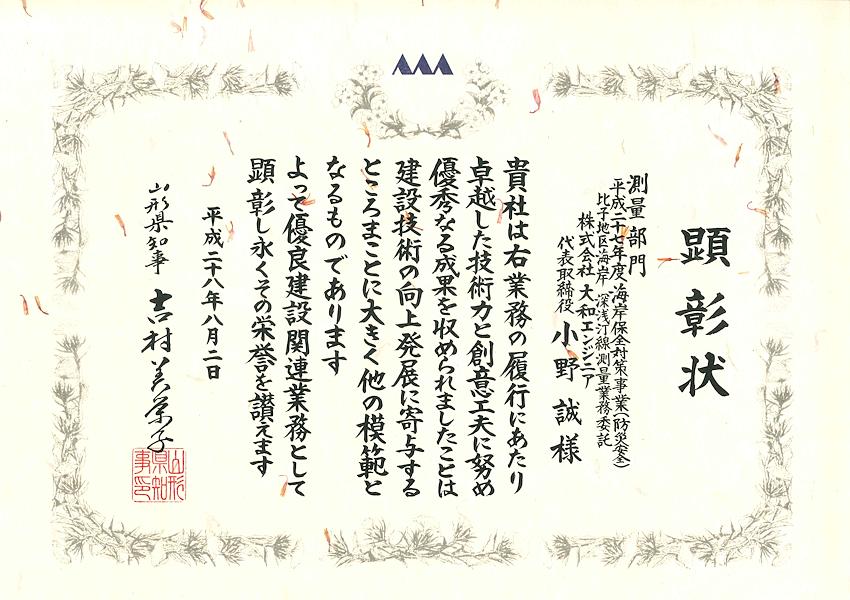 顕彰状
測量部門
平成二十七年度 海岸保全対策事業(防災安全)
比子地区海岸 深浅汀線測量業務委託
株式会社 大和エンジニア
代表取締役 小野 誠 様
貴社は右業務の履行にあたり
卓越した技術力と創意工夫に努め
優秀なる成果を収められましたことは
建設技術の向上発展に寄与する
ところまことに大きく他の模範と
なるものであります
よって優良建設関連業務として
顕彰し永くその栄誉を讃えます
平成二十八年八月二日
山形県知事 吉村美栄子
山形県知事印